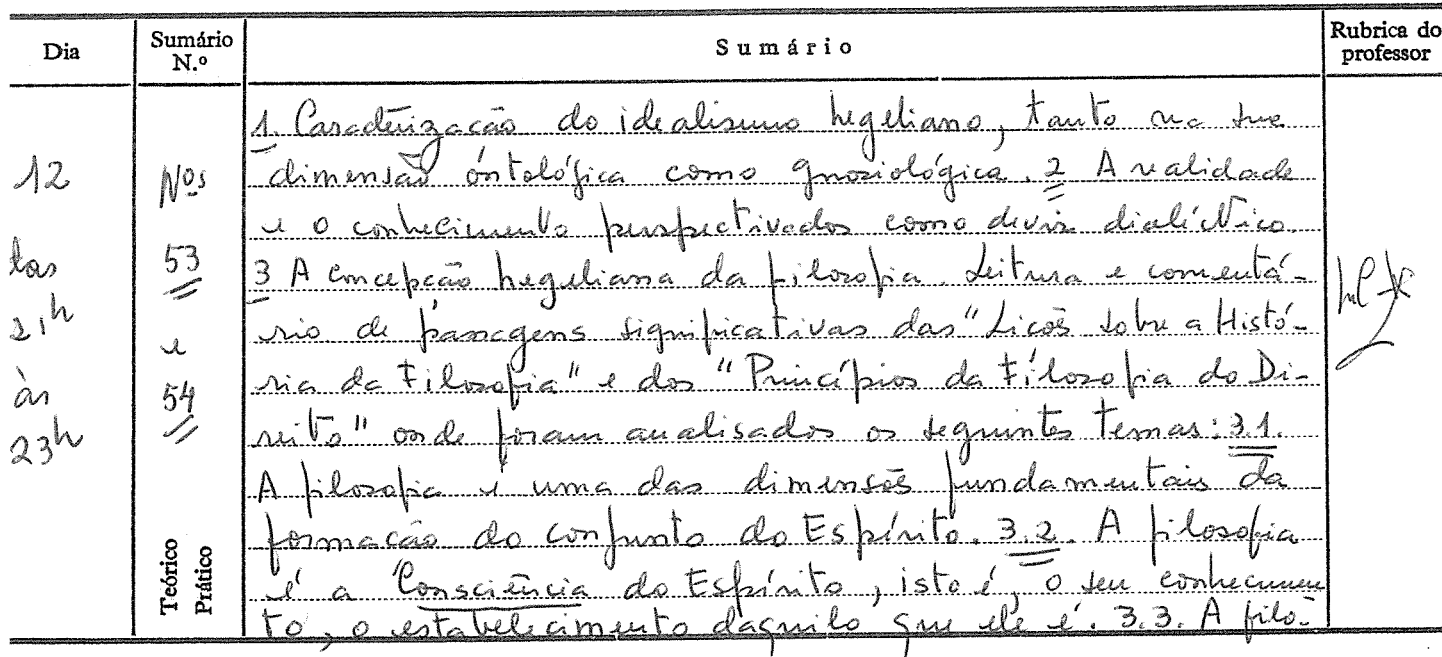 Dia
Sumário N.º
Sumário
Rubrica do professor
12
das
21h
às
23h
Nos
53
e
54
Teórico
Prático
1. Caracterização do idealismo hegeliano, tanto na sua
dimensão ontológica como gnosiológica. 2 A realidade
e o conhecimento perspectivados como devir dialéctico.
3 A concepção hegeliana da filosofia. Leitura e comentá-
rio de passagens significativas das "Lições sobre a Histó-
ria da Filosofia" e dos "Princípios da Filosofia do Di-
reito" onde foram analisados os seguintes temas: 3.1.
A filosofia é uma das dimensões fundamentais da
formação do conjunto do Espírito. 3.2. A filosofia
é a Consciência do Espírito, isto é, o seu conhecimen
to, o estabelecimento daquilo que ele é. 3.3. A filo-